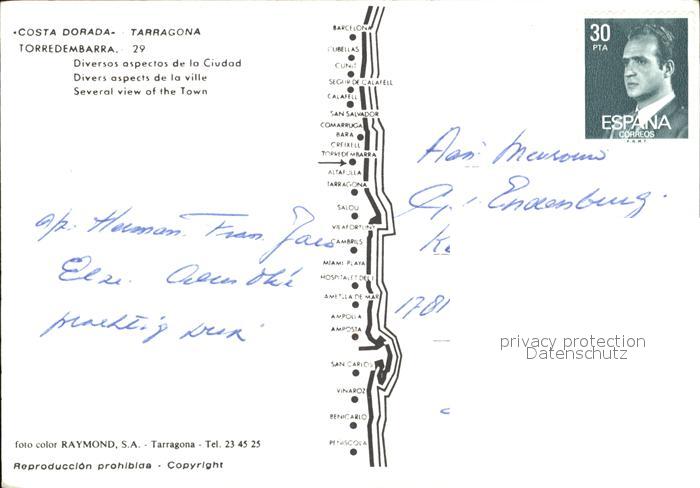 «COSTA DORADA» - TARRAGONA
TORREDEMBARRA. - 29
Diversos aspectos de la Ciudad
Divers aspects de la ville
Several view of the Town
BARCELONA
CUBELLAS
CUNIT
SEGUR DE CALAFELL
CALAFELL
SAN SALVADOR
COMARRUGA
BARA
CREIXELL
TORREDEMBARRA
ALTAFULLA
TARRAGONA
SALOU
VILAFORTUNY
CAMBRILS
MIAMI PLAYA
HOSPITALET DEL I
AMETLLA DE MAR
AMPOLLA
AMPOSTA
SAN CARLOS
VINAROZ
BENICARLO
PEÑISCOLA
30
PTA
ESPAÑA
CORREOS
F.N.M.T.
Aan
Endenburg
1781
Herman. Fran.
Elze.
prachtig
privacy protection
Datenschutz
foto color RAYMOND, S.A. - Tarragona - Tel. 23 45 25
Reproducción prohibida - Copyright